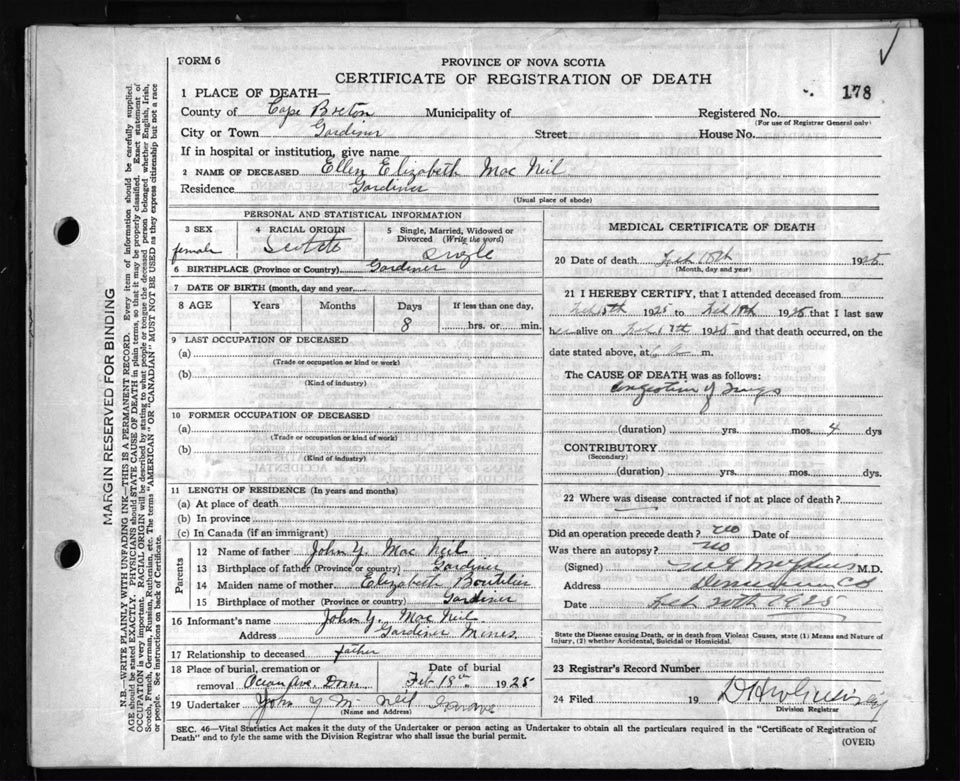 FORM 6
PROVINCE OF NOVA SCOTIA
CERTIFICATE OF REGISTRATION OF DEATH
178
1 PLACE OF DEATH—
County of Cape Breton Municipality of Registered No.
(For use of Registrar General only)
City or Town Gardiner Street House No.
If in hospital or institution, give name
2 NAME OF DECEASED Ellen Elizabeth Mac Neil
Residence Gardiner
(Usual place of abode)
PERSONAL AND STATISTICAL INFORMATION
3 SEX 4 RACIAL ORIGIN 5 Single, Married, Widowed or Divorced (Write the word)
female Scotch Single
6 BIRTHPLACE (Province or Country) Gardiner
7 DATE OF BIRTH (month, day and year)
8 AGE Years Months Days If less than one day,
8 hrs. or min.
9 LAST OCCUPATION OF DECEASED
(a)
(Trade or occupation or kind or work)
(b)
(Kind of industry)
10 FORMER OCCUPATION OF DECEASED
(a)
(Trade or occupation or kind of work)
(b)
(Kind of industry)
11 LENGTH OF RESIDENCE (In years and months)
(a) At place of death
(b) In province
(c) In Canada (if an immigrant)
Parents
12 Name of father John Y. Mac Neil
13 Birthplace of father (Province or country) Gardiner
14 Maiden name of mother Elizabeth Boutilier
15 Birthplace of mother (Province or country) Gardiner
16 Informant's name John Y. Mac Neil
Address Gardiner Mines
17 Relationship to deceased father
18 Place of burial, cremation or removal Ocean Ave. Dom. Date of burial Feb 18th 1925
19 Undertaker John Y M Neil
(Name and Address)
MEDICAL CERTIFICATE OF DEATH
20 Date of death Feb 18th 1925
(Month, day and year)
21 I HEREBY CERTIFY, that I attended deceased from
Feb 15th 1925 to Feb 18th 1925 that I last saw
her alive on Feb 17th 1925 and that death occurred, on the
date stated above, at m.
The CAUSE OF DEATH was as follows:
Congestion of Lungs
(duration) yrs. mos. 4 dys
CONTRIBUTORY
(Secondary)
(duration) yrs. mos. dys.
22 Where was disease contracted if not at place of death?
Did an operation precede death? no Date of
Was there an autopsy? no
(Signed) M.D.
Address
Date Feb 20th 1925
State the Disease causing Death, or in death from Violent Causes, state (1) Means and Nature of
Injury, (2) whether Accidental, Suicidal or Homicidal.
23 Registrar's Record Number
24 Filed 19
Division Registrar
SEC. 46—Vital Statistics Act makes it the duty of the Undertaker or person acting as Undertaker to obtain all the particulars required in the "Certificate of Registration of
Death" and to fyle the same with the Division Registrar who shall issue the burial permit.
(OVER)
MARGIN RESERVED FOR BINDING
N.B.—WRITE PLAINLY WITH UNFADING INK—THIS IS A PERMANENT RECORD. Every item of information should be carefully supplied.
AGE should be stated EXACTLY. PHYSICIANS should STATE CAUSE OF DEATH in plain terms, so that it may be properly classified. Exact statement of
OCCUPATION is very important. RACIAL ORIGIN will be described by stating to what people or tongue the deceased person belonged whether English, Irish,
Scotch, French, German, Russian, Ruthenian, etc. The terms "AMERICAN" OR "CANADIAN" MUST NOT BE USED as they express citizenship but not a race
or people. See instructions on back of Certificate.